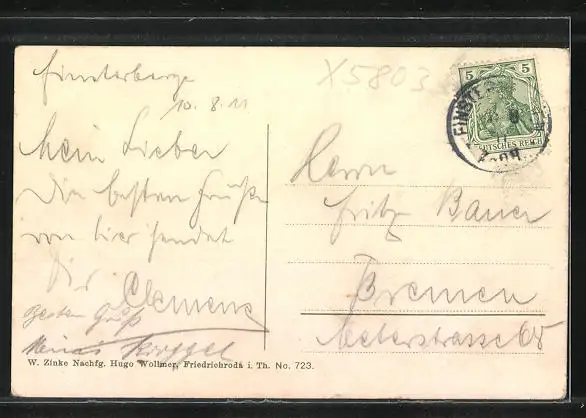 Finsterberge
10.8.11
X5803
Mein Lieber
Die besten Grüße
von hier sendet
Dir Clemens
Besten Gruß
W. Zinke Nachfg. Hugo Wollmer, Friedrichroda i. Th. No. 723.
5 5
DEUTSCHES REICH
FINSTE
Herrn
Fritz Bauer
Bremen
Meterstrasse 65